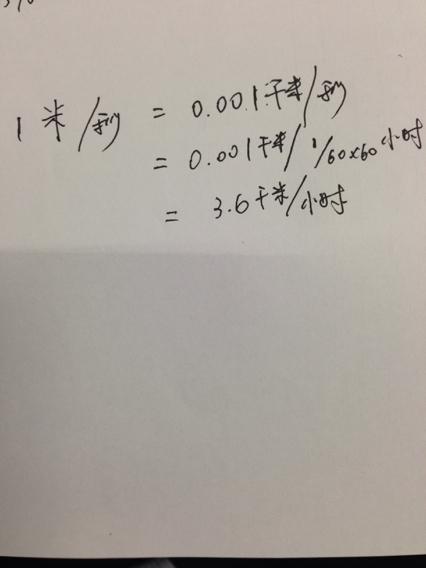 1米/秒 = 0.001千米/秒
= 0.001千米/ 1/60×60小时
= 3.6千米/小时